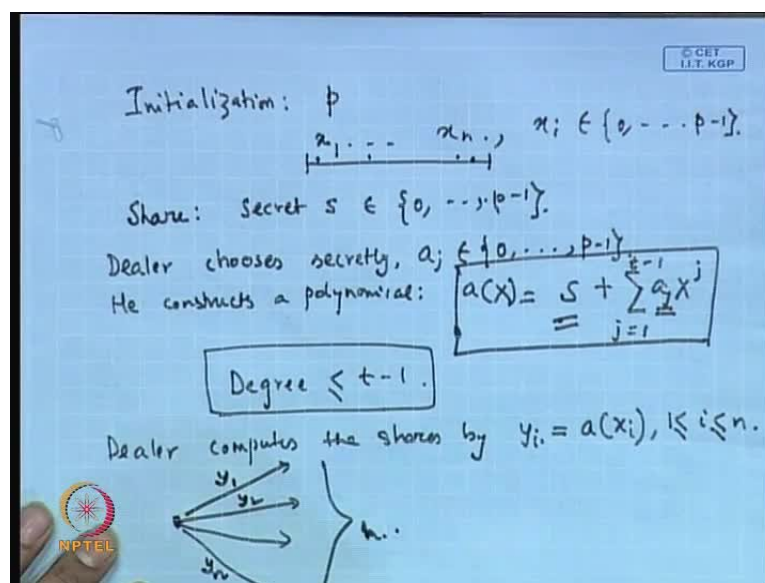 © CET
I.I.T. KGP
Initialization: p
x₁ . - - . xₙ ., xᵢ ∈ {0, - - - . p-1}.
Share: Secret s ∈ {0, - - , . p-1}.
Dealer chooses secretly, aⱼ ∈ {0, . . . , p-1}
He constructs a polynomical: a(X) = S + ∑_{j=1}^{t-1} aⱼ X^j
Degree ≤ t-1 .
Dealer computes the shares by yᵢ. = a(xᵢ), 1 ≤ i ≤ n.
y₁
y₂
n..
yₙ
NPTEL